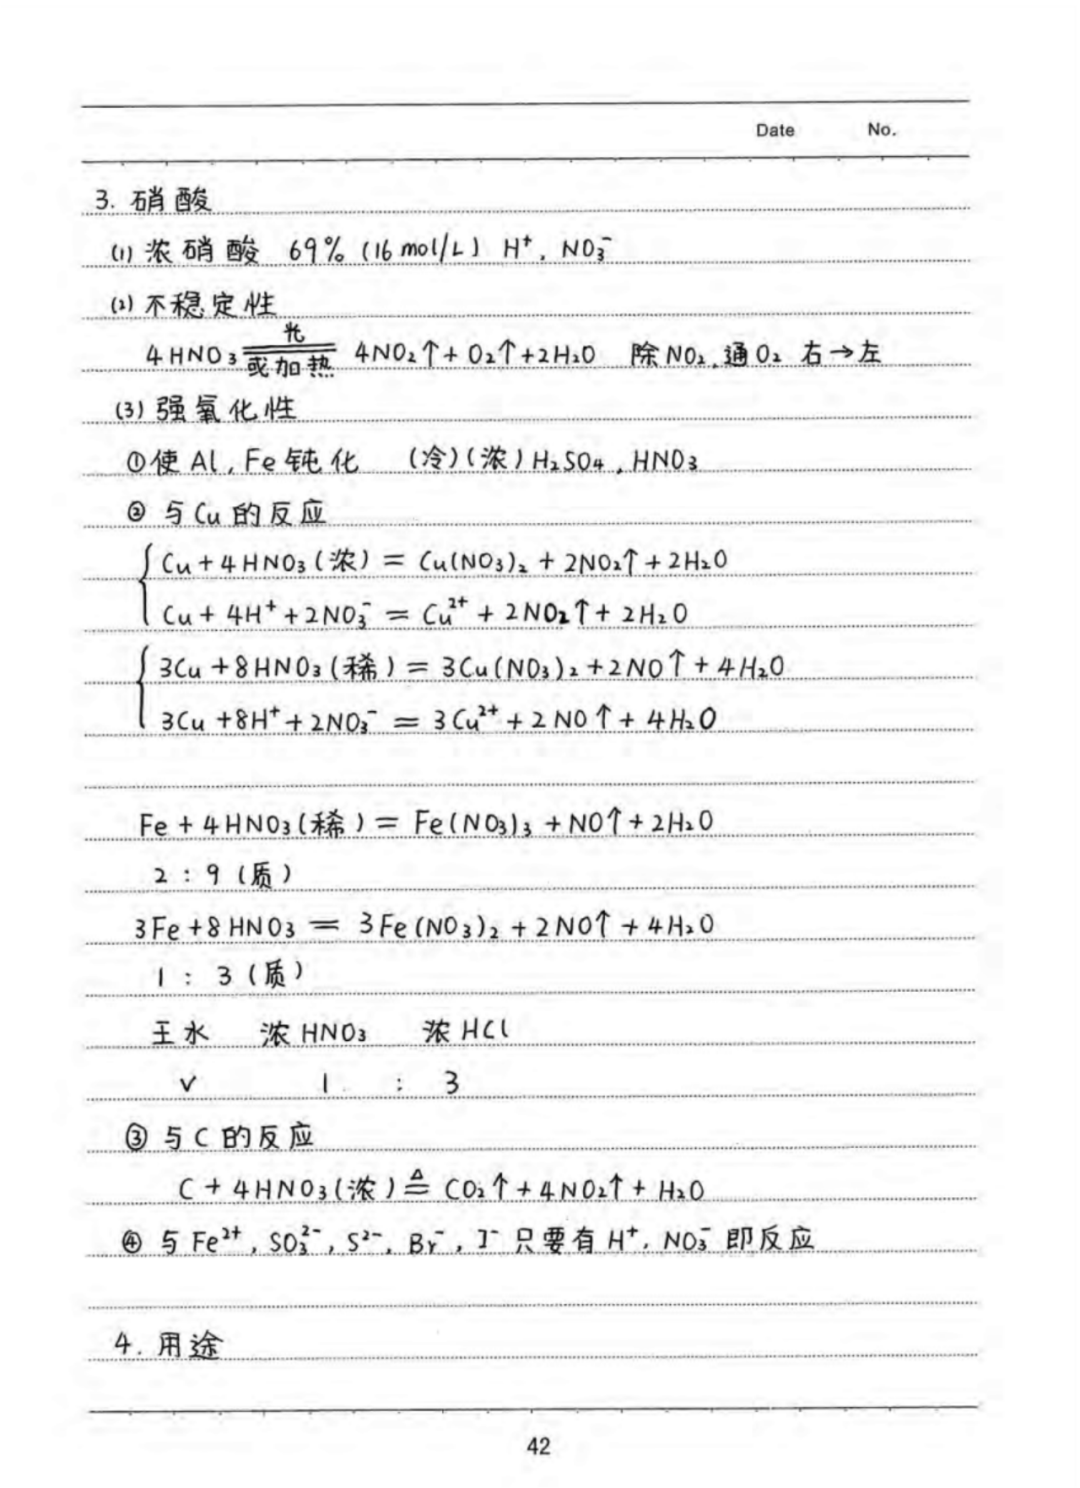 Date No.
3. 硝酸
(1) 浓硝酸 69% (16 mol/L) H⁺, NO₃⁻
(2) 不稳定性
4HNO₃ 光 或加热 4NO₂↑ + O₂↑ + 2H₂O 除NO₂, 通O₂ 右→左
(3) 强氧化性
①使Al, Fe钝化 (冷)(浓) H₂SO₄, HNO₃
② 与Cu的反应
Cu + 4HNO₃(浓) = Cu(NO₃)₂ + 2NO₂↑ + 2H₂O
Cu + 4H⁺ + 2NO₃⁻ = Cu²⁺ + 2NO₂↑ + 2H₂O
3Cu + 8HNO₃(稀) = 3Cu(NO₃)₂ + 2NO↑ + 4H₂O
3Cu + 8H⁺ + 2NO₃⁻ = 3Cu²⁺ + 2NO↑ + 4H₂O
Fe + 4HNO₃(稀) = Fe(NO₃)₃ + NO↑ + 2H₂O
2 : 9 (质)
3Fe + 8HNO₃ = 3Fe(NO₃)₂ + 2NO↑ + 4H₂O
1 : 3 (质)
王水 浓HNO₃ 浓HCl
V 1 : 3
③ 与C的反应
C + 4HNO₃(浓) ≜ CO₂↑ + 4NO₂↑ + H₂O
④ 与Fe²⁺, SO₃²⁻, S²⁻, Br⁻, I⁻ 只要有H⁺, NO₃⁻ 即反应
4. 用途
42